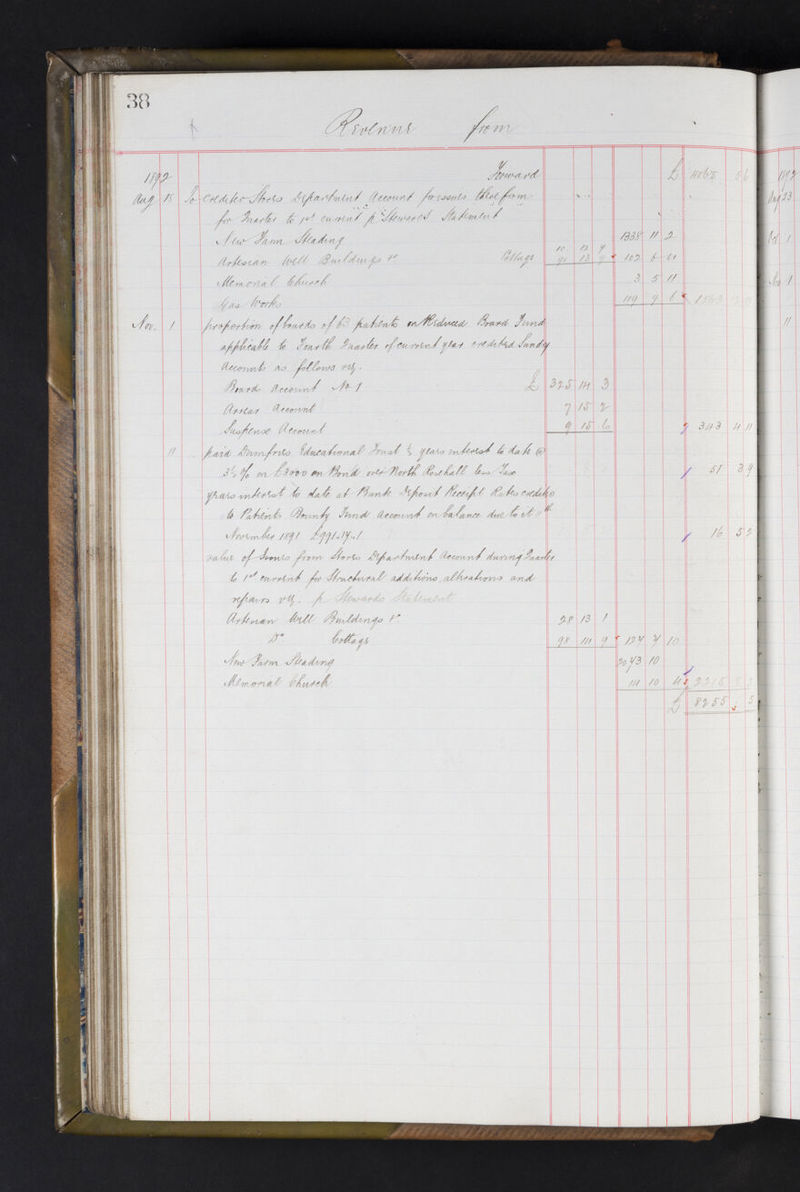 38
Revenue from
1892 Forward £
Aug 15 To credited Stores Department Account for issues therefrom
for Quarter to 1st current p. Steward's Statement
New Farm Steading 1338 11 2
Artesian Well Buildings &c 10 12 9
Cottage 91 13 9 102 6 6
Memorial Church 3 5 11
Gas Works 119 9 6
Nov. 1 proportion of boards of patients on Reduced Board Fund
applicable to Fourth Quarter of current year credited Sundry
Accounts as follows viz.
Board Account No 1 £ 325 14 3
Arrear Account 7 15 2
Suspense Account 9 15 6 343 4 11
11 paid Dumfries Educational Trust ½ years interest to date @
3½ % on £3000 on Bond over North Rosehall less Tax 51 3 9
years interest to date at Bank Deposit Receipt Rates credited
to Patients Bounty Fund Account on balance due to it
November 1891 £991.17.1 16 5 2
value of Issues from Stores Department Account during Quarter
to 1st current for Structural additions alterations and
repairs viz. p. Stewards Statement
Artesian Well Buildings &c 28 13 1
Do Cottage 98 14 9 127 7 10
New Farm Steading 2073 10
Memorial Church 14 10 4
£ 8255 5